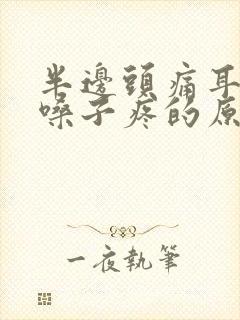 半邊頭痛耳
嗓子疼的原
一夜執筆